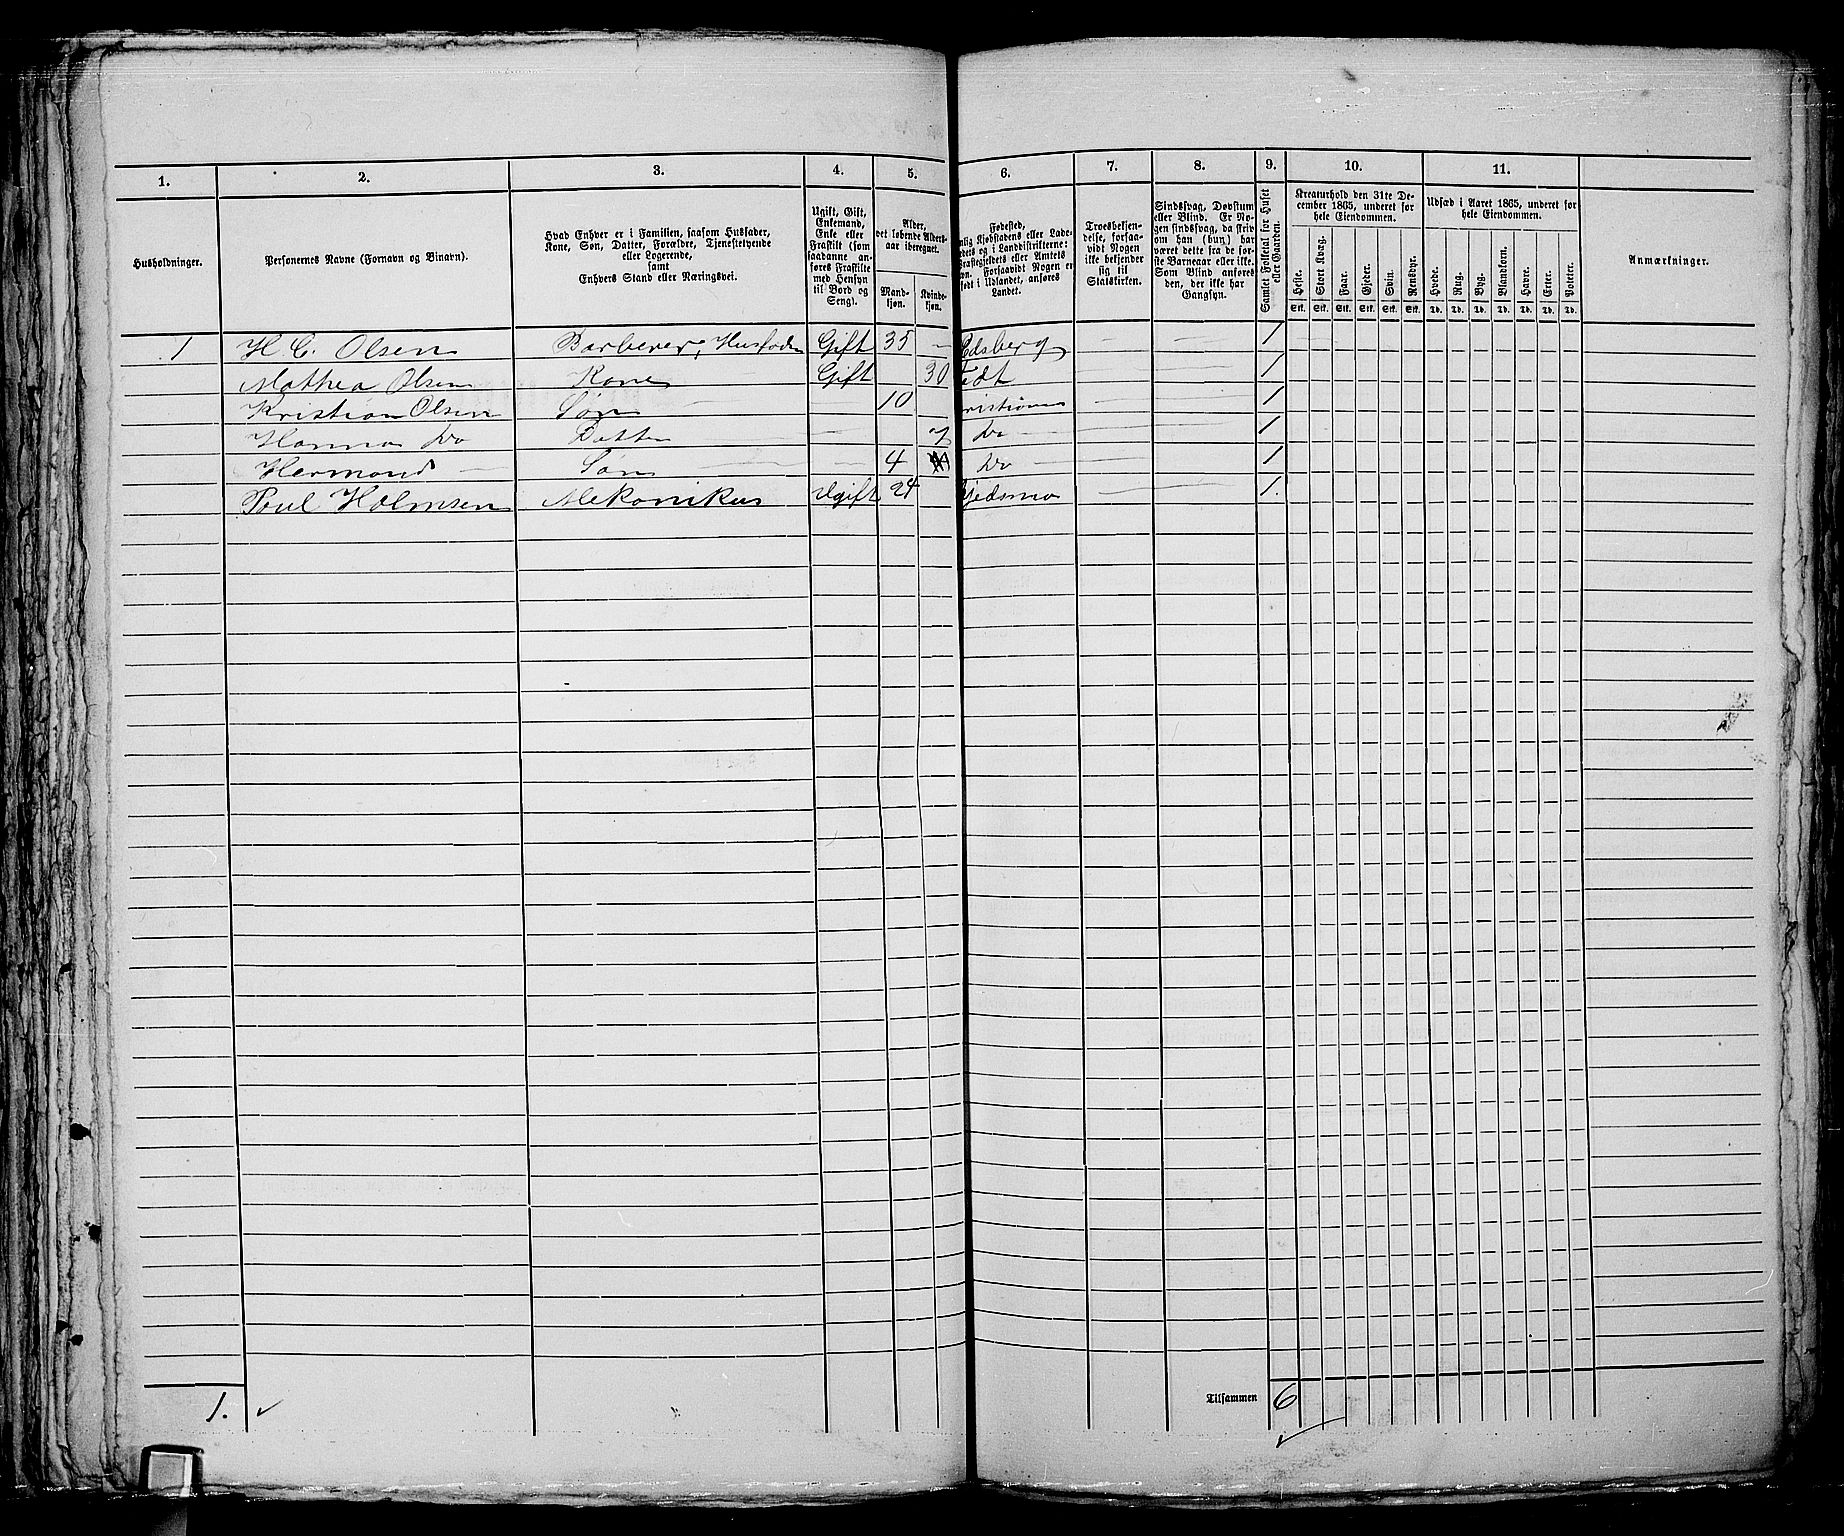 1. 2. 3. 4. 5. 6. 7. 8. 9. 10. 11.
Husholdninger.
Personernes Navne (Fornavn og Binavn).
Hvad Enhver er i Familien, saasom Husfader,
Kone, Søn, Datter, Forældre, Tjenestetyende
eller Logerende,
samt
Enhvers Stand eller Næringsvei.
Ugift, Gift,
Enkemand,
Enke eller
Fraskilt (som
saadanne an-
føres Fraskilte
med Hensyn
til Bord og
Seng).
Alder,
det løbende Alders-
aar iberegnet.
Mand-
kjøn.
Kvinde-
kjøn.
Fødested,
nlig Kjøbstadens eller Lade-
edets og i Landdistrikterne:
æstegjeldets eller Amtets
vn. Forsaavidt Nogen er
født i Udlandet, anføres
Landet.
Troesbekjen-
delse, forsaa-
vidt Nogen
ikke bekjender
sig til
Statskirken.
Sindssvag, Døvstum
eller Blind. Er No-
gen sindssvag, da skriv
om han (hun) har
været dette fra de før-
ste Barneaar eller ikke.
Som Blind anføres
den, der ikke har
Gangsyn.
Samlet Folketal for Huset
eller Gaarden.
Kreaturhold den 31te De-
cember 1865, underet for
hele Eiendommen.
Heste. Stort Kvæg. Faar. Gjeder. Svin. Rensdyr.
Stk. Stk. Stk. Stk. Stk. Stk.
Udsæd i Aaret 1865, underet for
hele Eiendommen.
Hvede. Rug. Byg. Blandkorn. Havre. Erter. Poteter.
Td. Td. Td. Td. Td. Td. Td.
Anmærkninger.
1 H. C. Olsen Barberer, Husfader Gift 35 — Edsberg — — 1
Mathea Olsen Kone Gift 30 — — 1
Kristian Olsen Søn — 10 — — 1
Hanna Do Datter — 7 Do — — 1
Hermand — Søn — 4 Do — — 1
Poul Holmsen Mekanikus Ugift 24 — — 1.
1. Tilsammen 6